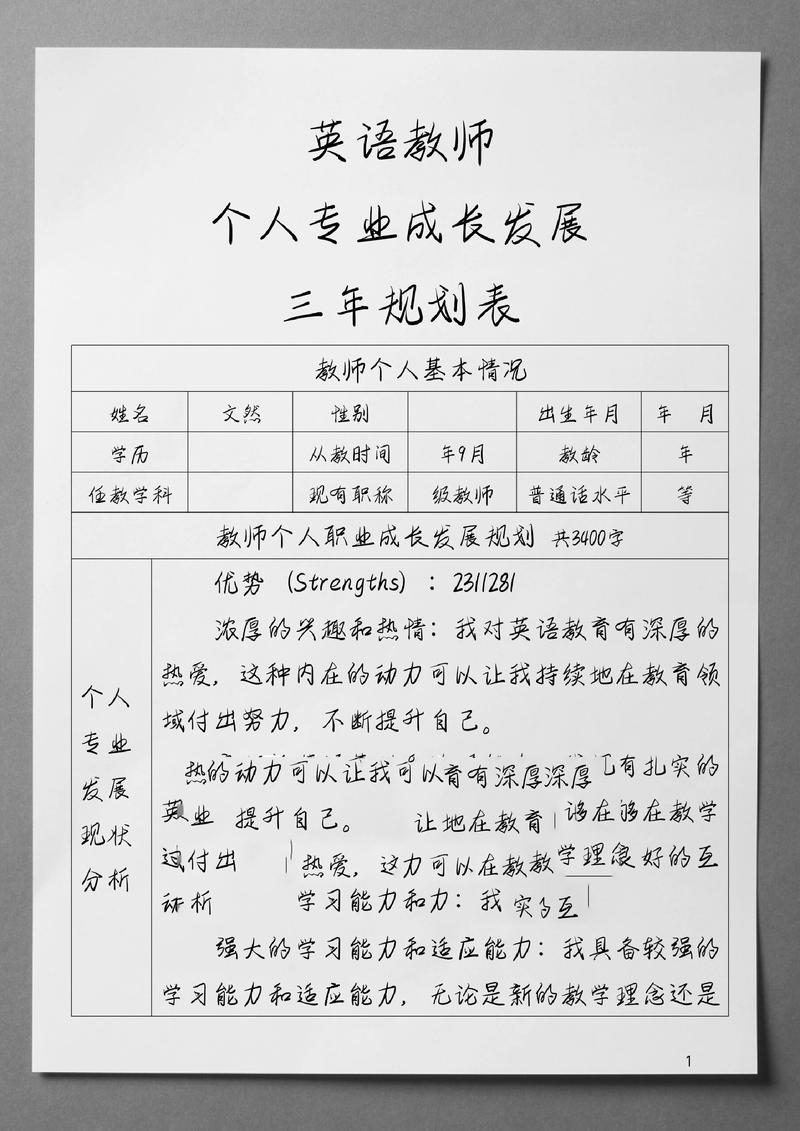 英语教师
个人专业成长发展
三年规划表
教师个人基本情况
姓名 文然 性别 出生年月 年 月
学历 从教时间 年9月 教龄 年
任教学科 现有职称 级教师 普通话水平 等
教师个人职业成长发展规划 共3400字
个人
专业
发展
现状
分析
优势 (Strengths) : 2311281
浓厚的兴趣和热情:我对英语教育有深厚的
热爱,这种内在的动力可以让我持续地在教育领
域付出努力,不断提升自己。
热的动力可以让我可以育有深厚深厚 有扎实的
业 提升自己。 让地在教育 够在够在教学
过付出 热爱,这力可以在教教学理 良好的互
析 学习能力和力:我 实 互
强大的学习能力和适应能力:我具备较强的
学习能力和适应能力,无论是新的教学理念还是
1